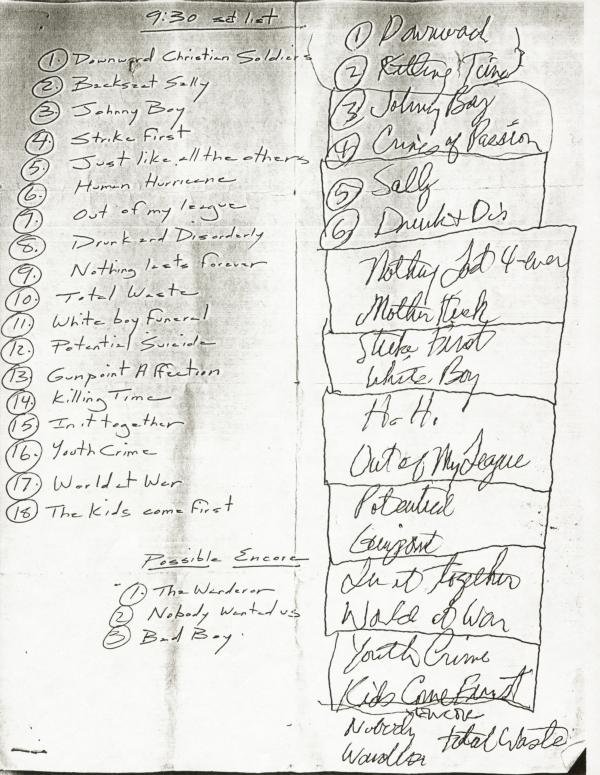 9:30 set list
1. Downward Christian Soldiers
2. Backseat Sally
3. Johnny Boy
4. Strike First
5. Just like all the others
6. Human Hurricane
7. Out of my league
8. Drunk and Disorderly
9. Nothing lasts forever
10. Total Waste
11. White boy Funeral
12. Potential Suicide
13 Gunpoint Affection
14. Killing Time
15 In it together
16. Youth Crime
17. World at War
18 The Kids come First
Possible Encore
1. The Wanderor
2 Nobody Wanted us
3 Bad Boy.
1 Downwad
2 Killing Time
3 Johnny Boy
4 Crimes of Passion
5 Sally
6 Drunk & Dis
Nothing Last 4-ever
Mother
Strike First
White Boy
H. H.
Out of My League
Potential
Gunpoint
In it together
World at War
Youth Crime
Kids Come First
ENCORE
Nobody
Total Waste
Wandlor